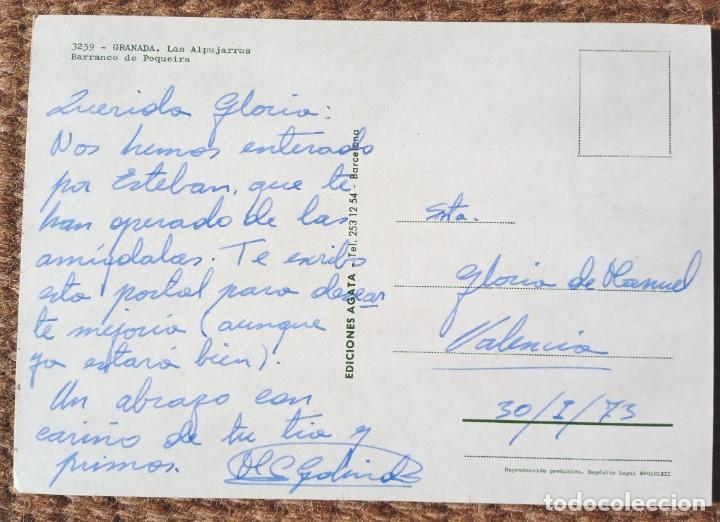 3259 - GRANADA. Las Alpujarras
Barranco de Poqueira
Querida Gloria:
Nos hemos enterado
por Esteban, que te
han operado de las
amígdalas. Te escribo
esta postal para desear
te mejoría (aunque
ya estará bien).
Un abrazo con
cariño de tu tia y
primos.
EDICIONES AGATA - Tel. 253 12 54 - Barcelona
Srta.
Gloria de Manuel
Valencia
30/I/73
Reproducción prohibida. Depósito Legal
todocoleccion
todocoleccion.net